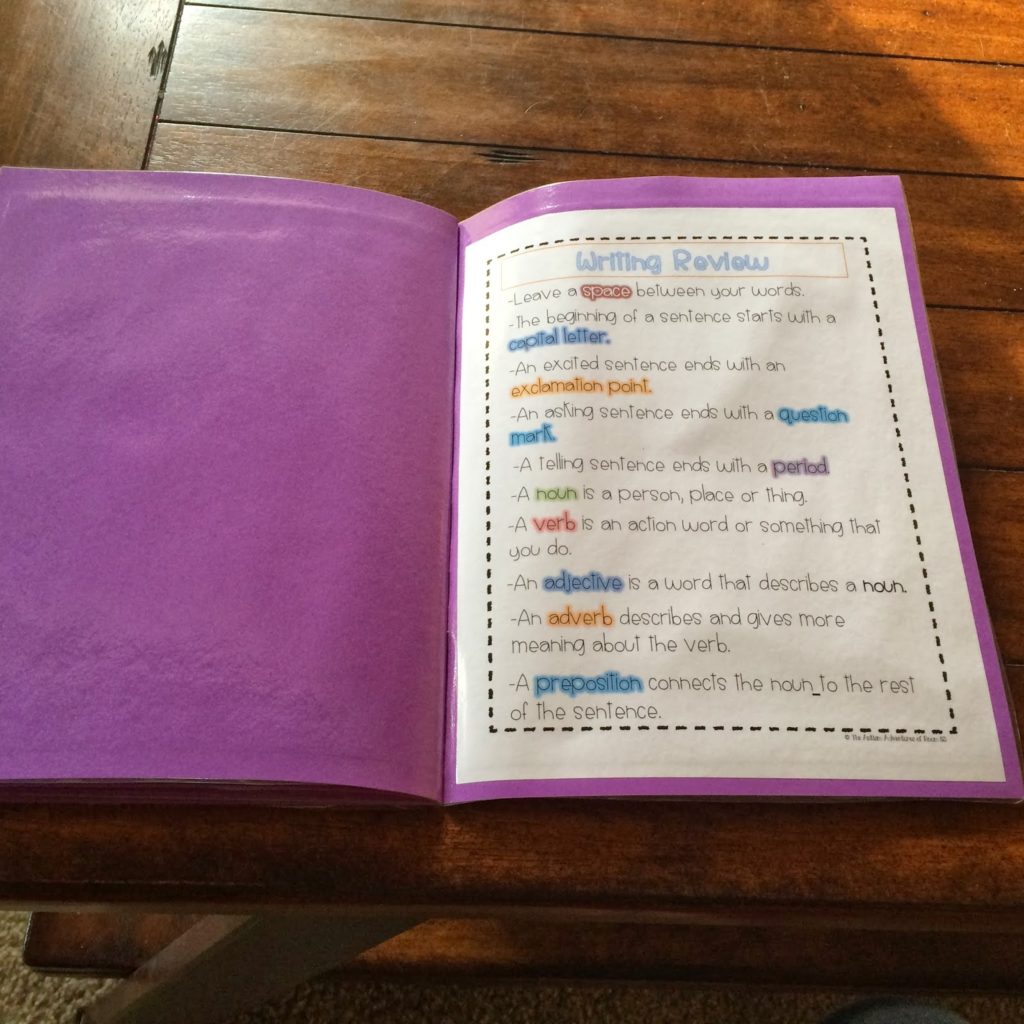 Writing Review
-Leave a space between your words.
-The beginning of a sentence starts with a
capital letter.
-An excited sentence ends with an
exclamation point.
-An asking sentence ends with a question
mark.
-A telling sentence ends with a period.
-A noun is a person, place or thing.
-A verb is an action word or something that
you do.
-An adjective is a word that describes a noun.
-An adverb describes and gives more
meaning about the verb.
-A preposition connects the noun to the rest
of the sentence.
© The Autism Adventures of Room 83